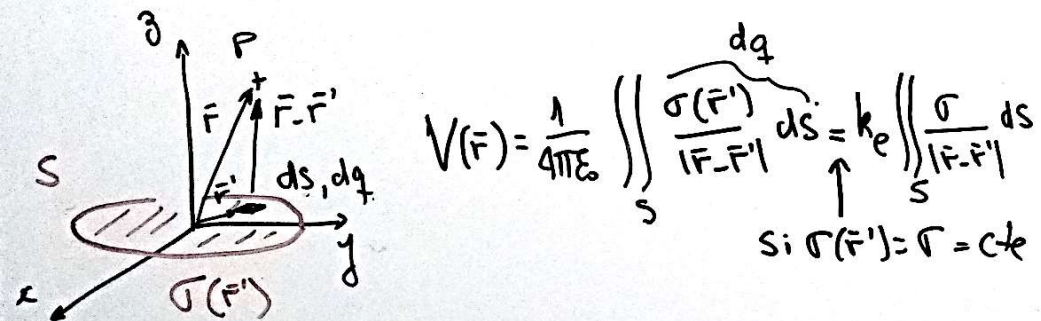 z
P
r̄
r̄-r̄'
S
r̄'
ds, dq
y
x
σ(r̄')
dq
V(r̄) = 1/4πε₀ ∬_S σ(r̄')/|r̄-r̄'| ds = k_e ∬_S σ/|r̄-r̄'| ds
si σ(r̄') = σ = cte